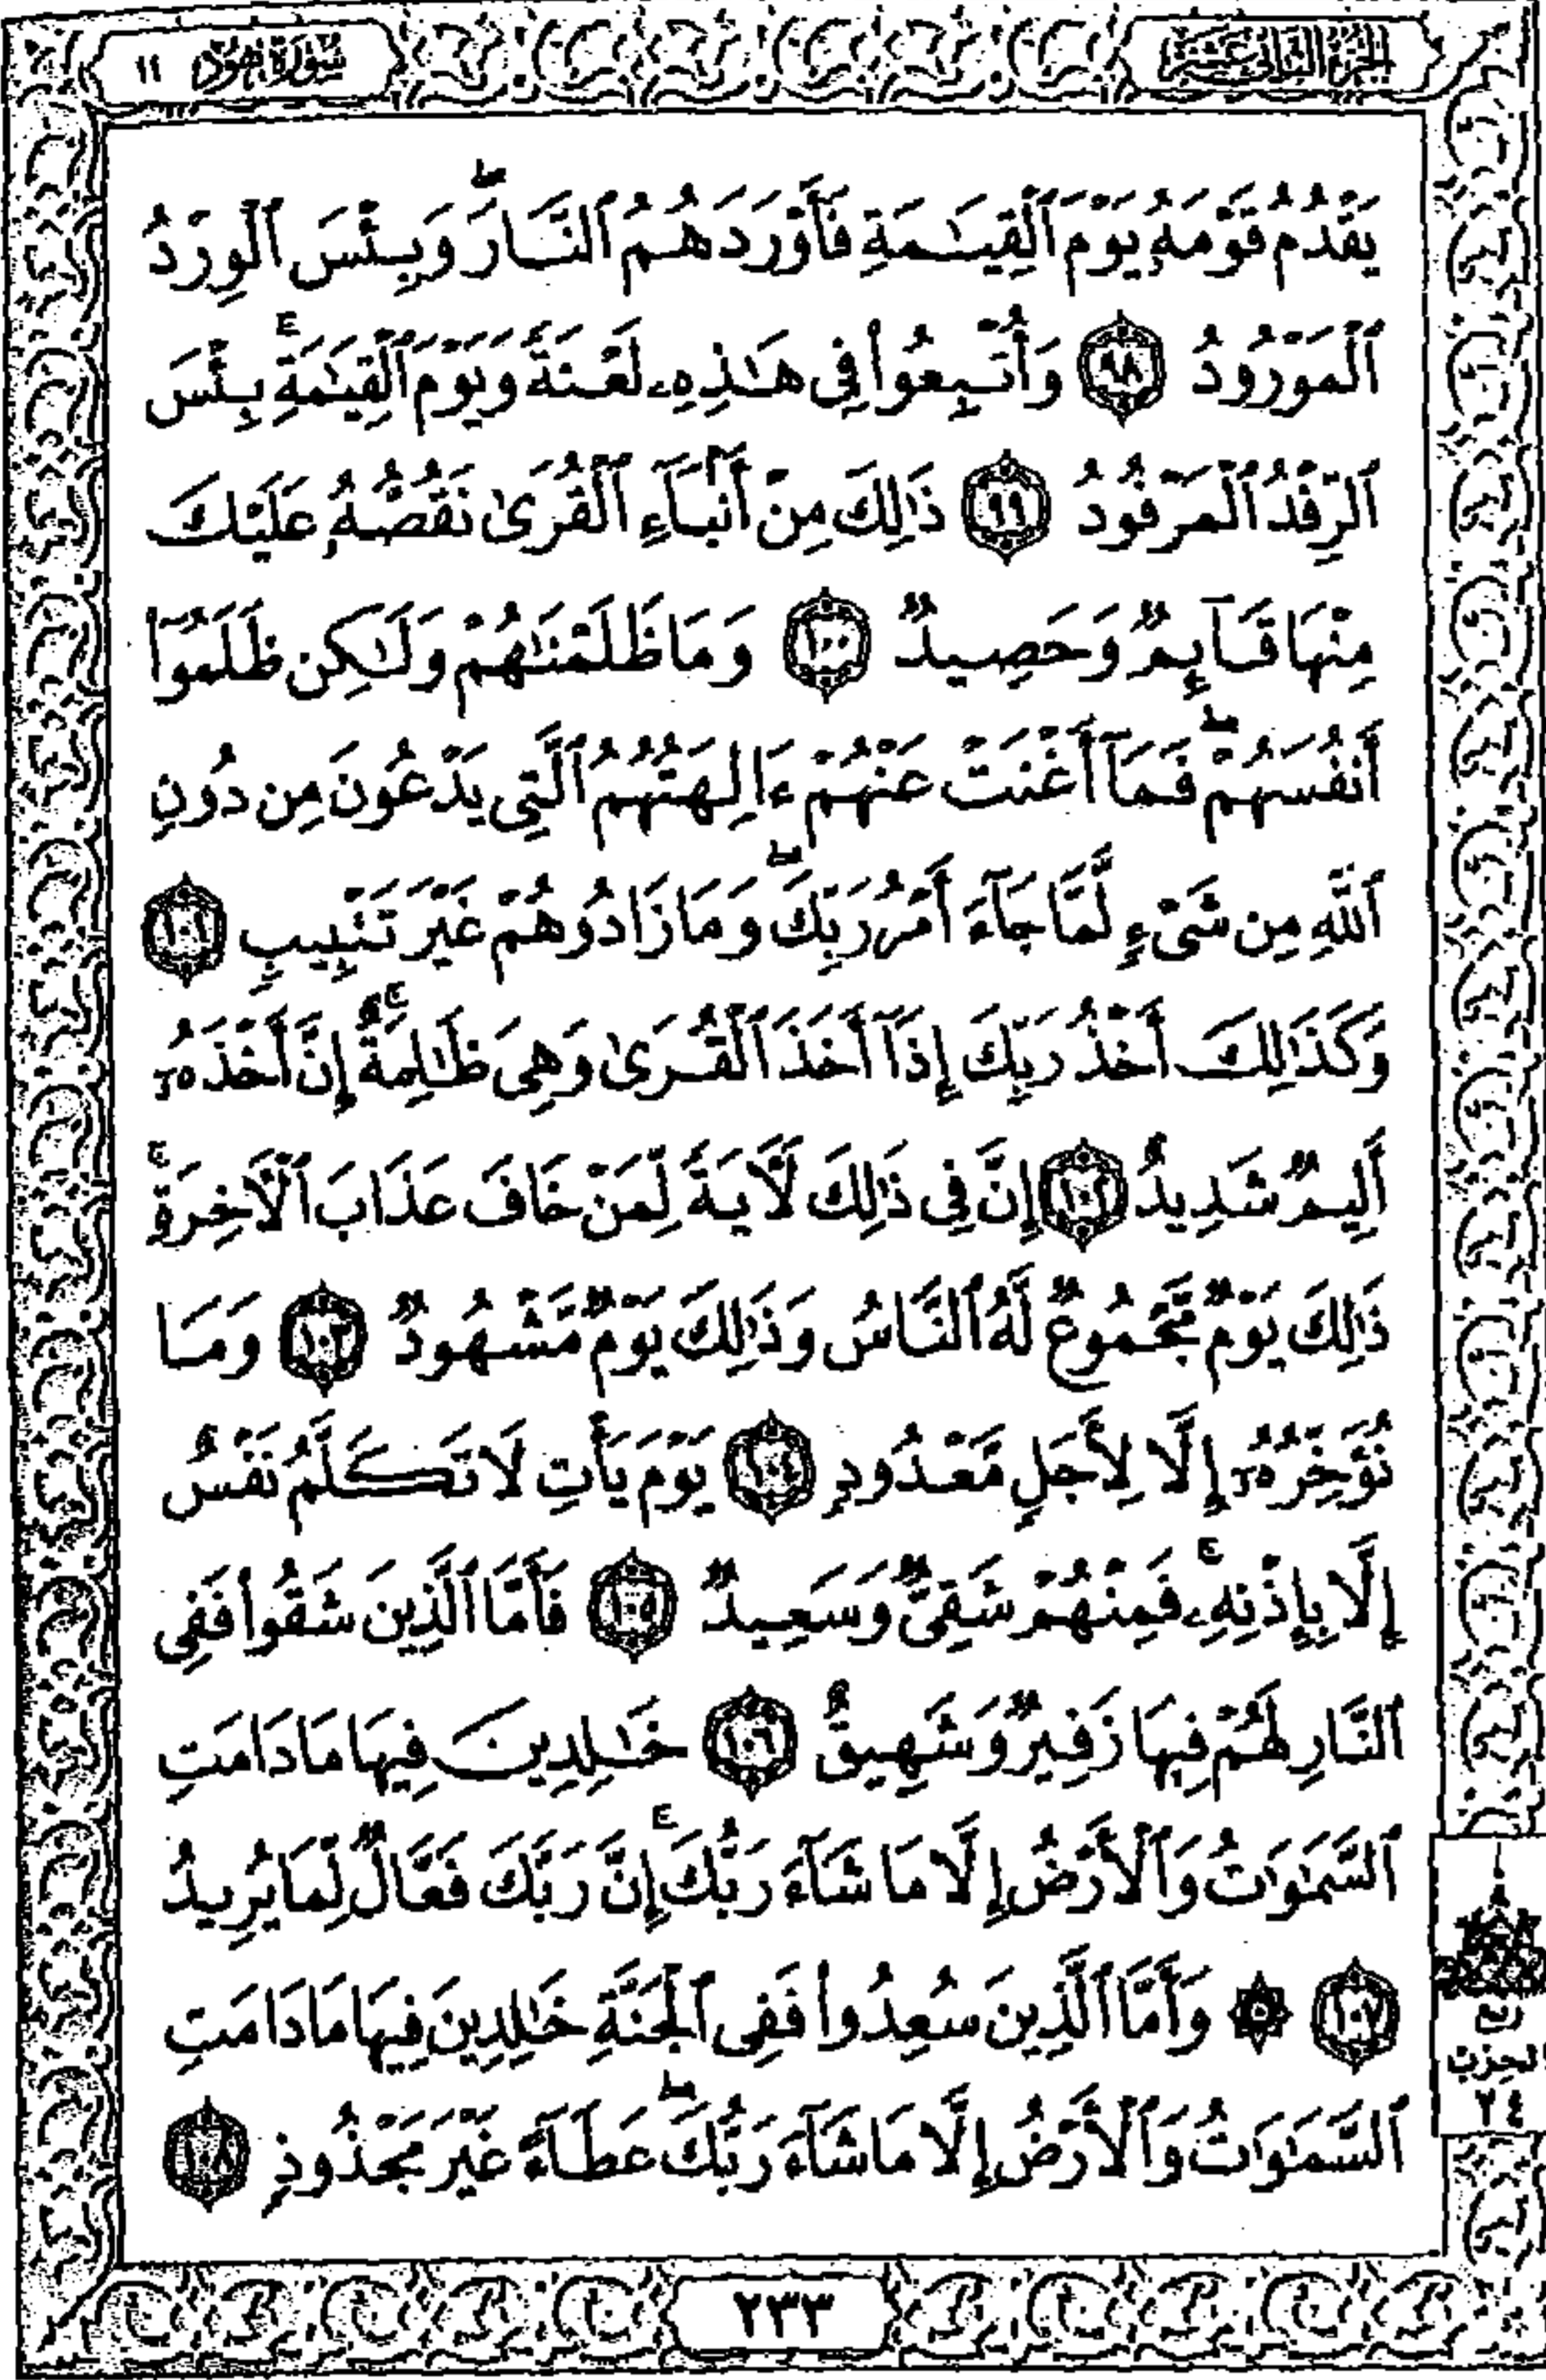 الجزء الثاني عشر
سورة هود ١١
يَقْدُمُ قَوْمَهُۥ يَوْمَ ٱلْقِيَـٰمَةِ فَأَوْرَدَهُمُ ٱلنَّارَ ۖ وَبِئْسَ ٱلْوِرْدُ
ٱلْمَوْرُودُ ٩٨ وَأُتْبِعُوا۟ فِى هَـٰذِهِۦ لَعْنَةً وَيَوْمَ ٱلْقِيَـٰمَةِ ۚ بِئْسَ
ٱلرِّفْدُ ٱلْمَرْفُودُ ٩٩ ذَٰلِكَ مِنْ أَنۢبَآءِ ٱلْقُرَىٰ نَقُصُّهُۥ عَلَيْكَ
مِنْهَا قَآئِمٌ وَحَصِيدٌ ١٠٠ وَمَا ظَلَمْنَـٰهُمْ وَلَـٰكِن ظَلَمُوٓا۟
أَنفُسَهُمْ ۖ فَمَآ أَغْنَتْ عَنْهُمْ ءَالِهَتُهُمُ ٱلَّتِى يَدْعُونَ مِن دُونِ
ٱللَّهِ مِن شَىْءٍ لَّمَّا جَآءَ أَمْرُ رَبِّكَ ۖ وَمَا زَادُوهُمْ غَيْرَ تَتْبِيبٍ ١٠١
وَكَذَٰلِكَ أَخْذُ رَبِّكَ إِذَآ أَخَذَ ٱلْقُرَىٰ وَهِىَ ظَـٰلِمَةٌ ۚ إِنَّ أَخْذَهُۥٓ
أَلِيمٌ شَدِيدٌ ١٠٢ إِنَّ فِى ذَٰلِكَ لَـَٔايَةً لِّمَنْ خَافَ عَذَابَ ٱلْـَٔاخِرَةِ ۚ
ذَٰلِكَ يَوْمٌ مَّجْمُوعٌ لَّهُ ٱلنَّاسُ وَذَٰلِكَ يَوْمٌ مَّشْهُودٌ ١٠٣ وَمَا
نُؤَخِّرُهُۥٓ إِلَّا لِأَجَلٍ مَّعْدُودٍ ١٠٤ يَوْمَ يَأْتِ لَا تَكَلَّمُ نَفْسٌ
إِلَّا بِإِذْنِهِۦ ۚ فَمِنْهُمْ شَقِىٌّ وَسَعِيدٌ ١٠٥ فَأَمَّا ٱلَّذِينَ شَقُوا۟ فَفِى
ٱلنَّارِ لَهُمْ فِيهَا زَفِيرٌ وَشَهِيقٌ ١٠٦ خَـٰلِدِينَ فِيهَا مَا دَامَتِ
ٱلسَّمَـٰوَٰتُ وَٱلْأَرْضُ إِلَّا مَا شَآءَ رَبُّكَ ۚ إِنَّ رَبَّكَ فَعَّالٌ لِّمَا يُرِيدُ
١٠٧ ۞ وَأَمَّا ٱلَّذِينَ سُعِدُوا۟ فَفِى ٱلْجَنَّةِ خَـٰلِدِينَ فِيهَا مَا دَامَتِ
ٱلسَّمَـٰوَٰتُ وَٱلْأَرْضُ إِلَّا مَا شَآءَ رَبُّكَ ۖ عَطَآءً غَيْرَ مَجْذُوذٍ ١٠٨
ربع
الحزب
٢٤
٢٣٣